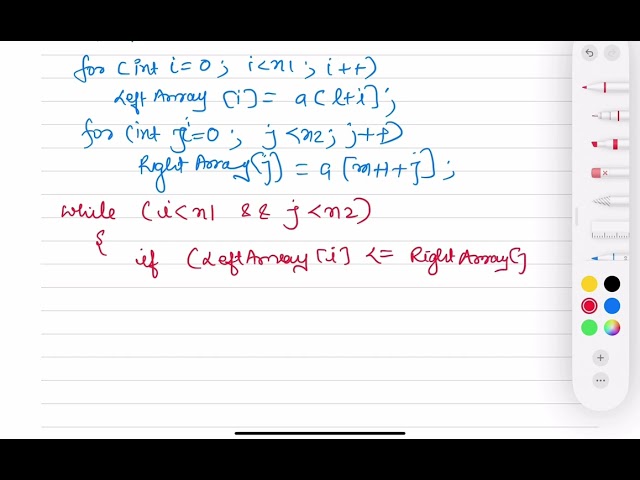 for (int i=0; i<n1; i++)
Left Array [i] = a[l+i];
for (int j=0; j<n2; j++)
Right Array[j] = a[m+1+j];
while (i<n1 && j<n2)
{
if (LeftArray[i] <= RightArray[j